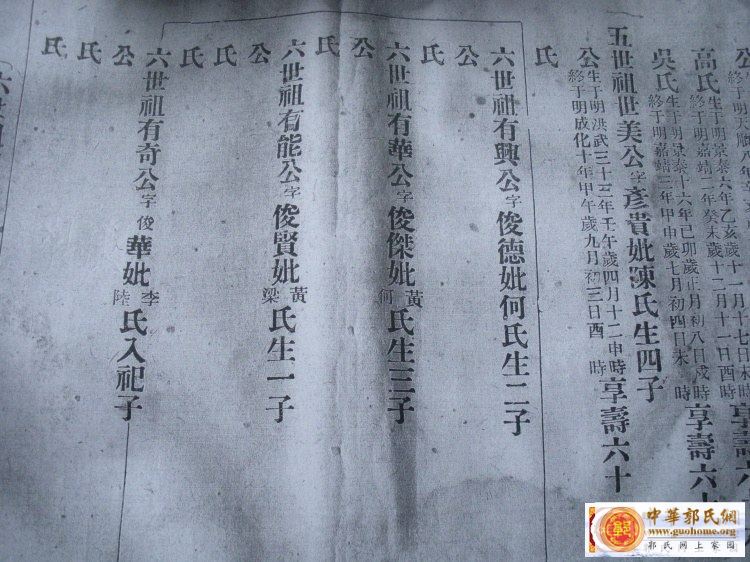 公
高氏生于明景泰六年乙亥歲十一月十七日未時
終于明嘉靖二年癸未歲十二月十一日酉時享壽六
吳氏生于明景泰十六年己卯歲正月初八日戌時
終于明嘉靖三年甲申歲七月初四日未時享壽六十
五世祖世美公字彥貴妣陳氏生四子
公生于明洪武三十三年壬午歲四月十二申時
終于明成化十年甲午歲九月初三日酉時享壽六十
氏
六世祖有興公字俊德妣何氏生二子
公
氏
六世祖有華公字俊傑妣黃何氏生三子
公
氏
六世祖有能公字俊賢妣黃梁氏生一子
公
氏
氏
六世祖有奇公字俊華妣李陸氏入祀子
公
氏
氏
六世祖
中華郭氏網
www.guohome.org
郭氏網上家園